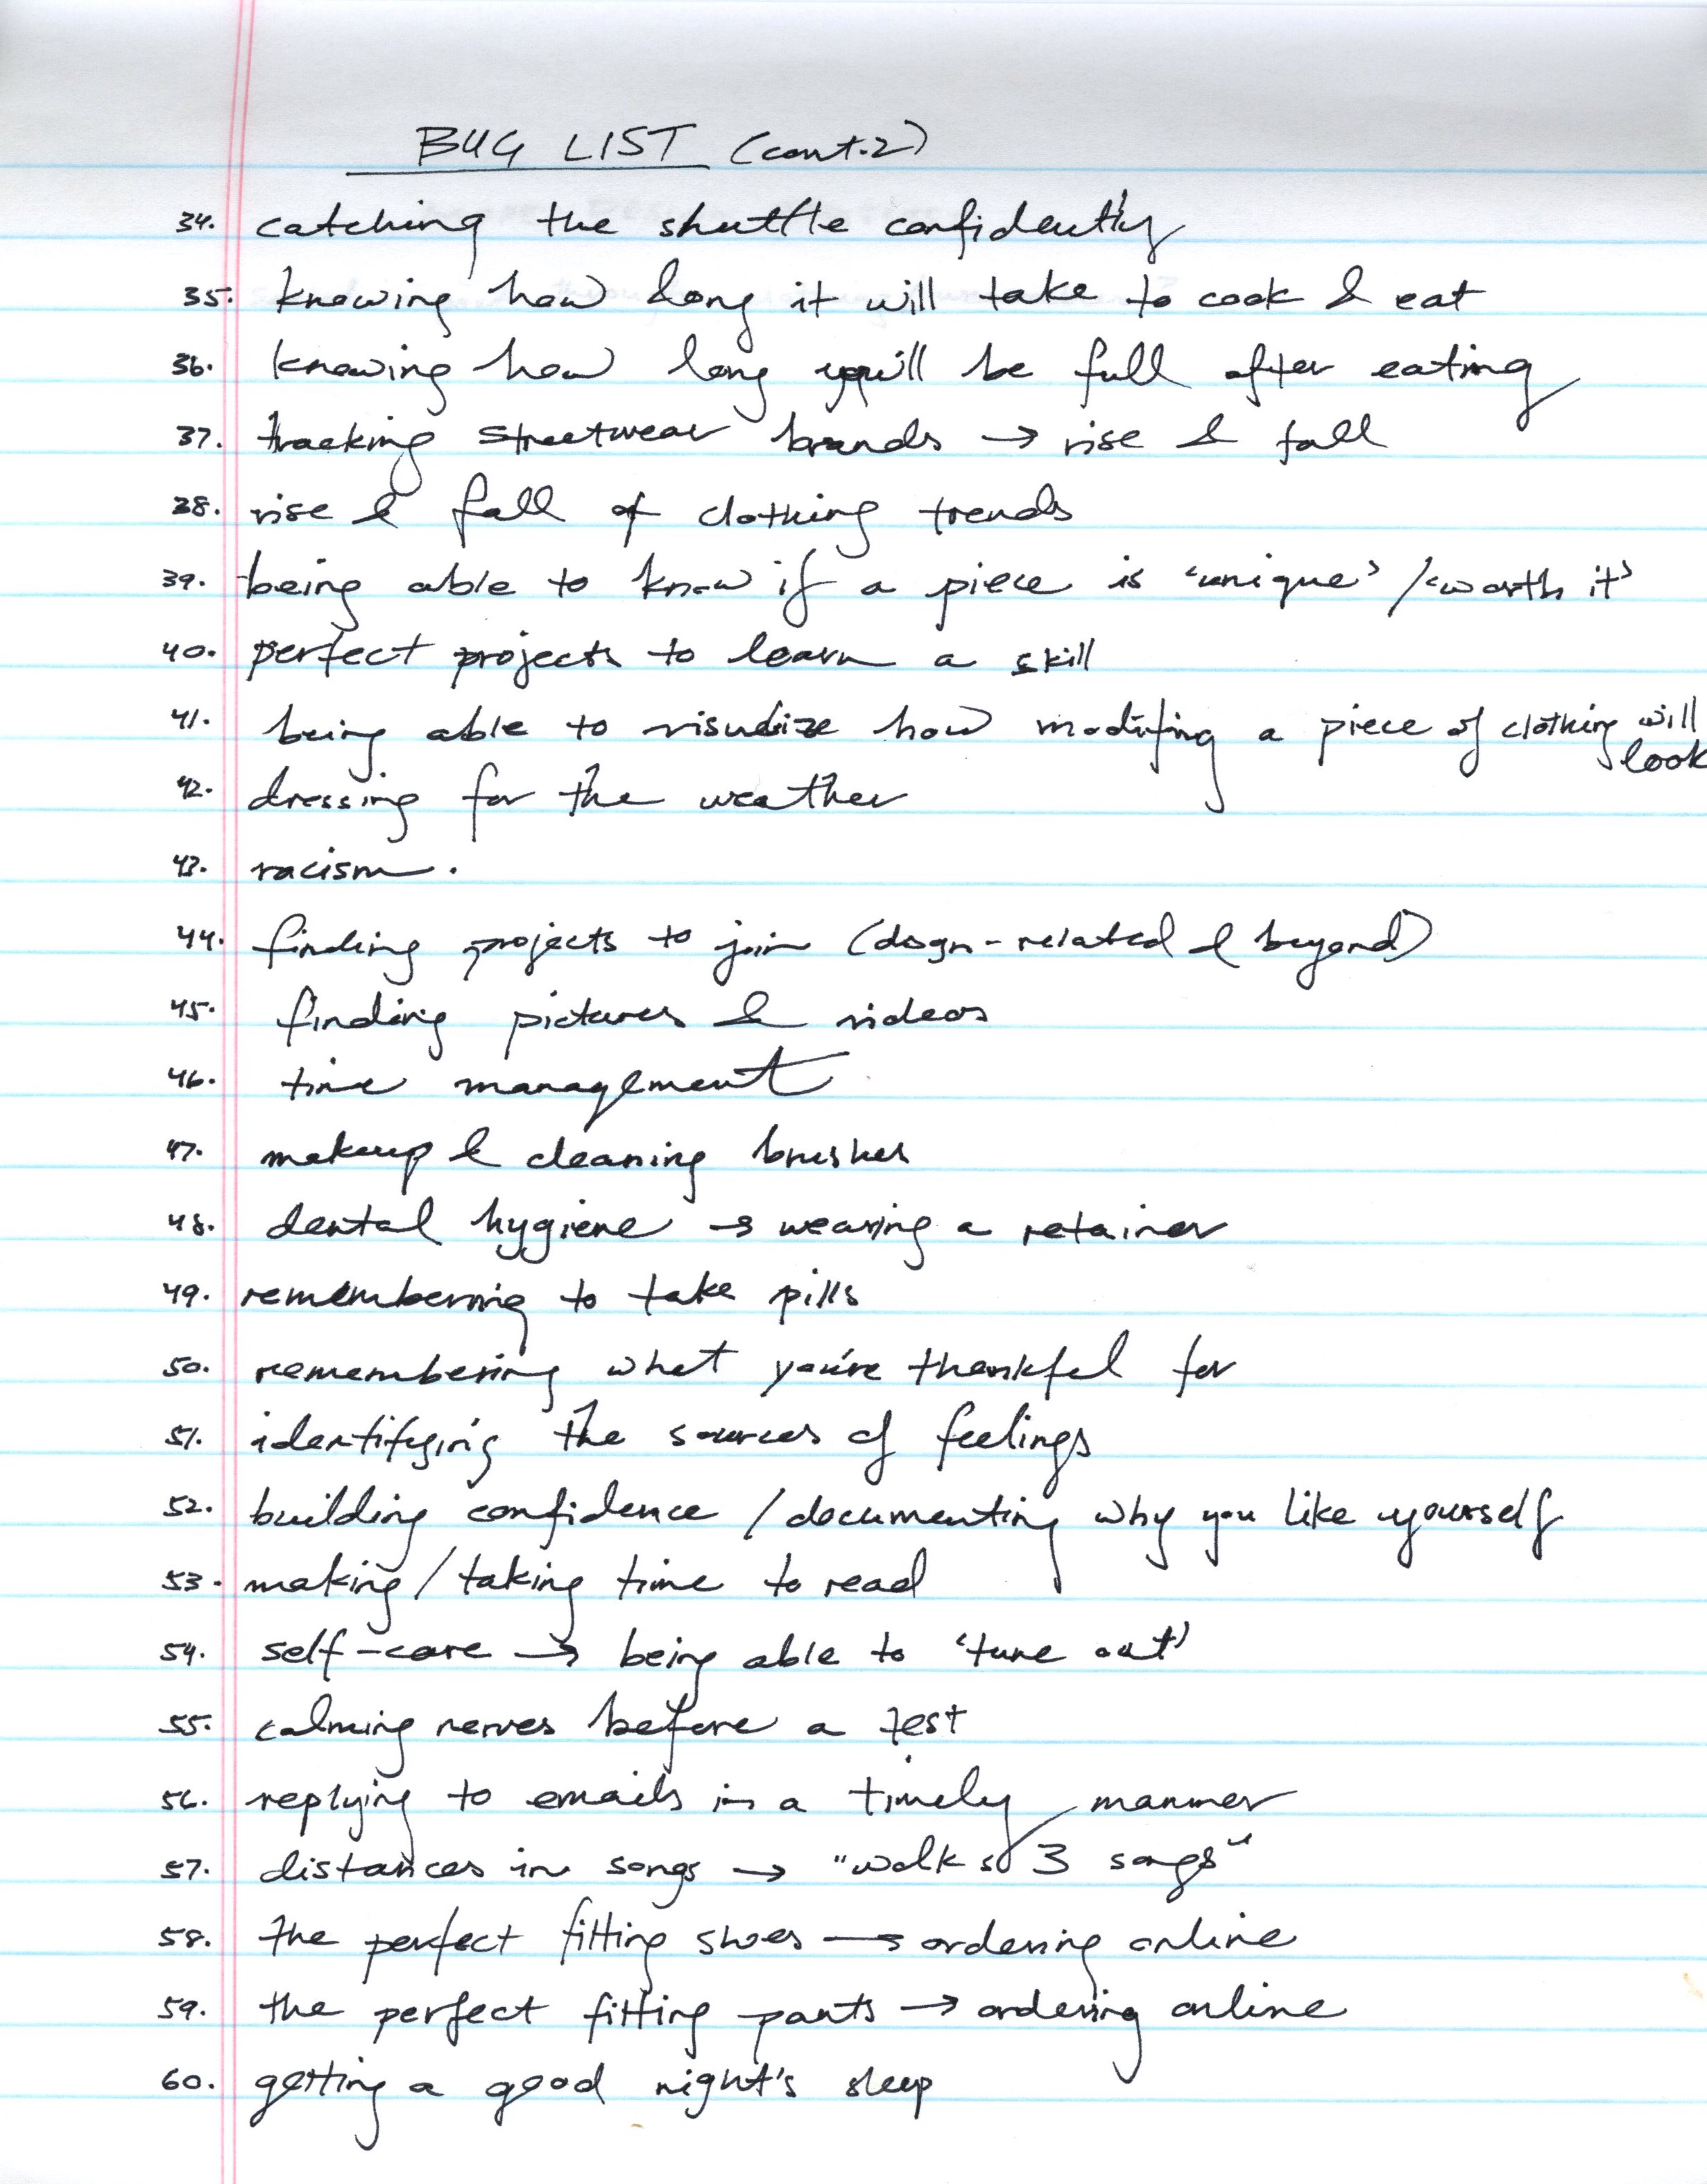 BUG LIST (cont.2)
34. catching the shuttle confidently
35. knowing how long it will take to cook & eat
36. knowing how long you'll be full after eating
37. tracking streetwear brands → rise & fall
38. rise & fall of clothing trends
39. being able to know if a piece is 'unique' / 'worth it'
40. perfect projects to learn a skill
41. being able to visualize how modifing a piece of clothing will
look
42. dressing for the weather
43. racism.
44. finding projects to join (dsgn-related & beyond)
45. finding pictures & videos
46. time management
47. makeup & cleaning brushes
48. dental hygiene → wearing a retainer
49. remembering to take pills
50. remembering what you're thankful for
51. identifying the sources of feelings
52. building confidence / documenting why you like yourself
53. making / taking time to read
54. self-care → being able to 'tune out'
55. calming nerves before a test
56. replying to emails in a timely manner
57. distances in songs → "walk 3 songs"
58. the perfect fitting shoes → ordering online
59. the perfect fitting pants → ordering online
60. getting a good night's sleep